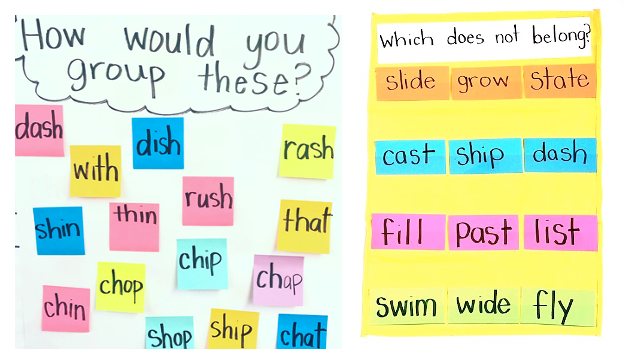 How would you
group these?
dash
with
dish
rash
shin
thin
rush
that
chip
chap
chop
chin
shop
ship
chat
Which does not belong?
slide grow state
cast ship dash
fill past list
swim wide fly